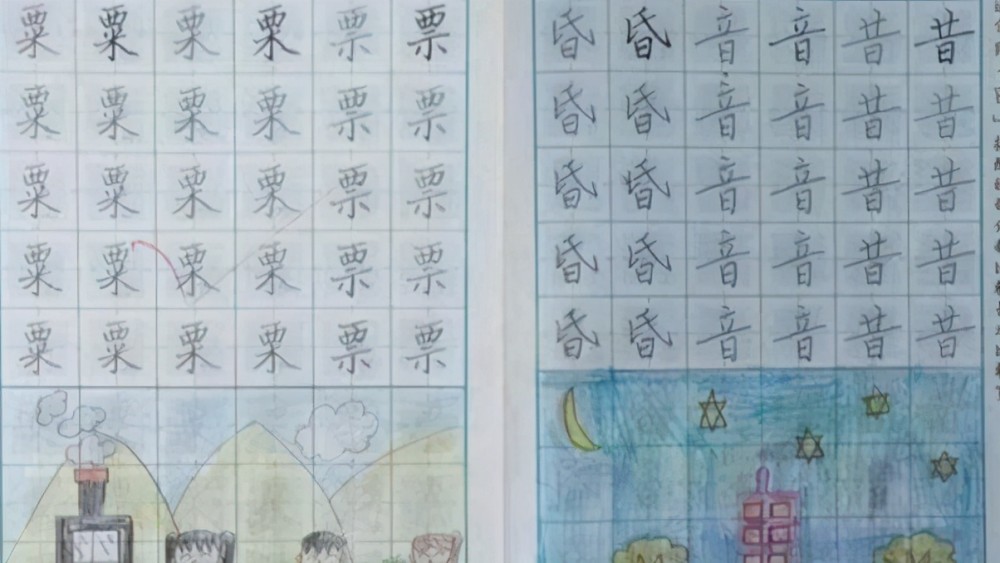 粟 粟 栗 栗 票 票
粟 粟 栗 栗 票 票
粟 粟 栗 栗 票 票
粟 粟 栗 栗 票 票
粟 粟 栗 栗 票 票
昏 昏 音 音 昔 昔
昏 昏 音 音 昔 昔
昏 昏 音 音 昔 昔
昏 昏 音 音 昔 昔
昏 昏 音 音 昔 昔